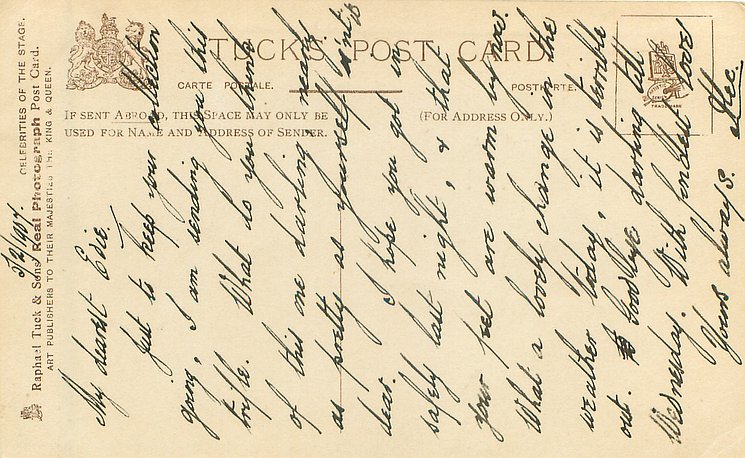 TUCK'S POST CARD
CARTE POSTALE.
POSTKARTE.
IF SENT ABROAD, THIS SPACE MAY ONLY BE
USED FOR NAME AND ADDRESS OF SENDER.
(FOR ADDRESS ONLY.)
CELEBRITIES OF THE STAGE.
Raphael Tuck & Sons' Real Photograph Post Card.
ART PUBLISHERS TO THEIR MAJESTIES THE KING & QUEEN.
TRADE MARK
My dearest Edie.
Just to keep your collection
going, I am sending you this
trifle. What do you think
of this one darling nearly
as pretty as yourself isnt it
dear. I hope you got in
safely last night, & that
your feet are warm by now.
What a lovely change in the
weather today, it is terrible
out. Goodbye darling till
Wednesday. With fondest love
Yours always.